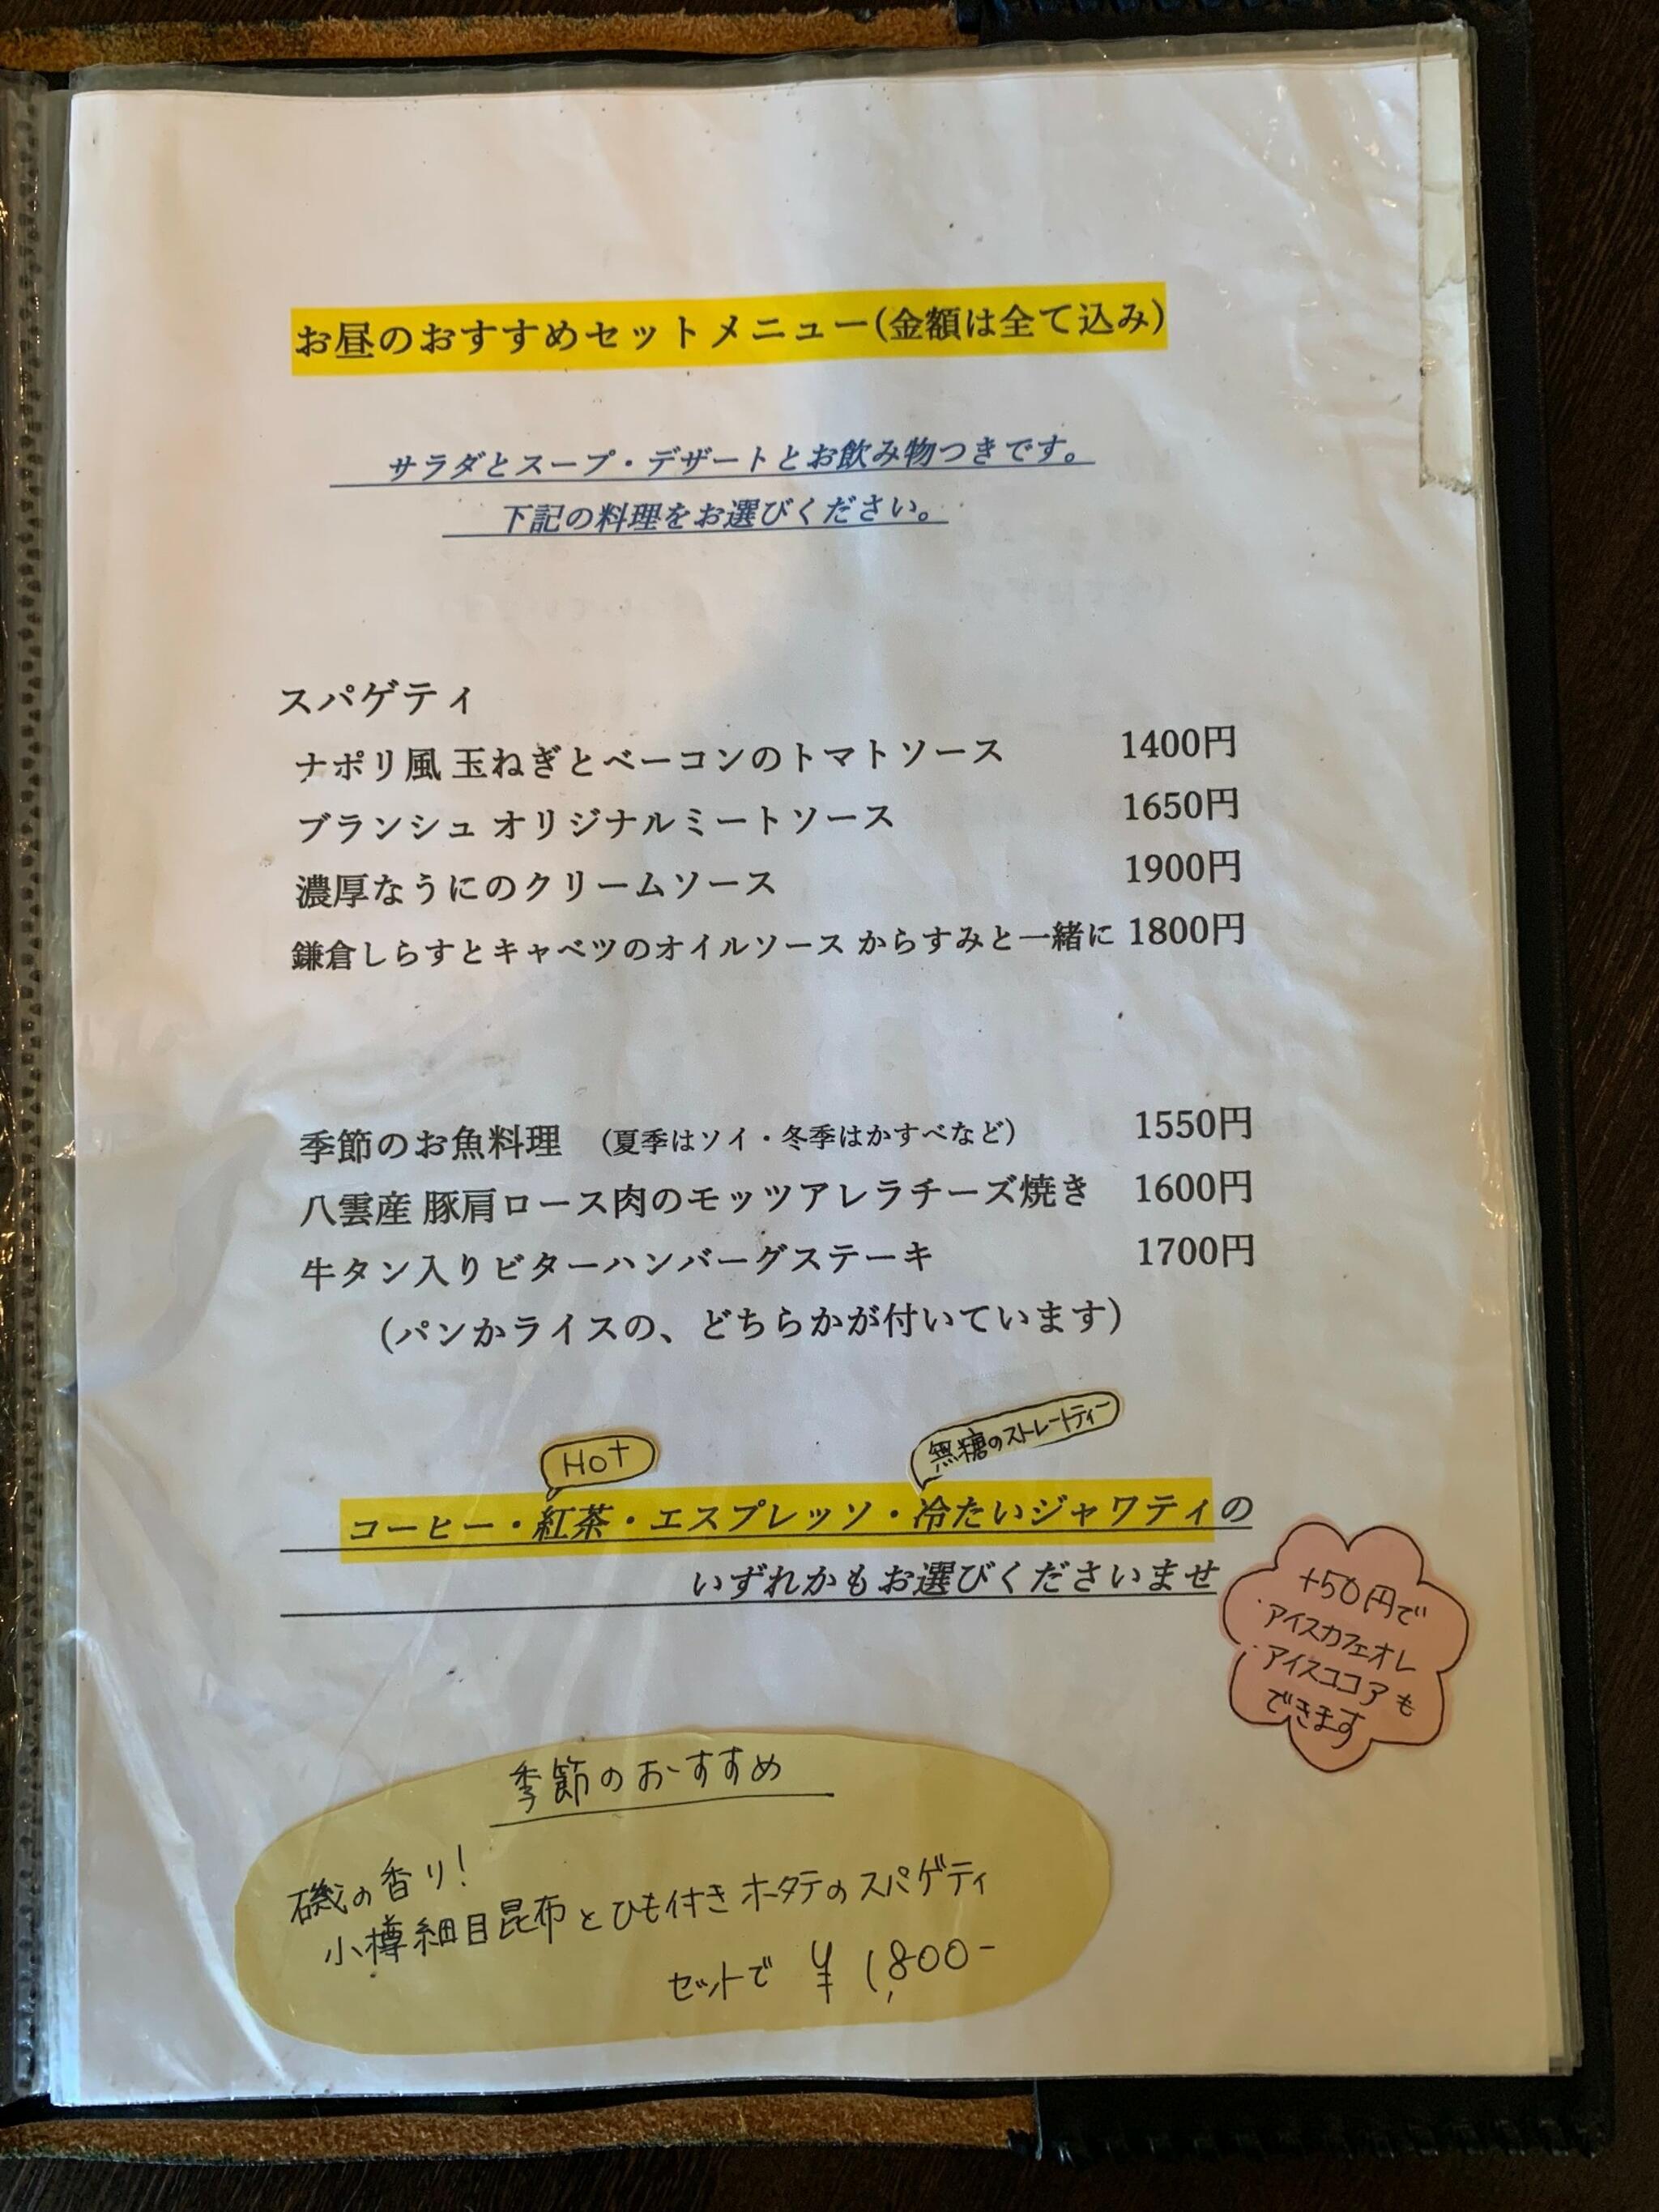 お昼のおすすめセットメニュー(金額は全て込み)
サラダとスープ・デザートとお飲み物つきです。
下記の料理をお選びください。
スパゲティ
ナポリ風 玉ねぎとベーコンのトマトソース 1400円
ブランシュ オリジナルミートソース 1650円
濃厚なうにのクリームソース 1900円
鎌倉しらすとキャベツのオイルソース からすみと一緒に 1800円
季節のお魚料理 (夏季はソイ・冬季はかすべなど) 1550円
八雲産 豚肩ロース肉のモッツアレラチーズ焼き 1600円
牛タン入りビターハンバーグステーキ 1700円
(パンかライスの、どちらかが付いています)
Hot
無糖のストレートティー
コーヒー・紅茶・エスプレッソ・冷たいジャワティの
いずれかもお選びくださいませ
+50円で
・アイスカフェオレ
・アイスココアも
できます
季節のおすすめ
磯の香り!
小樽細目昆布とひも付きホタテのスパゲティ
セットで ¥1,800-